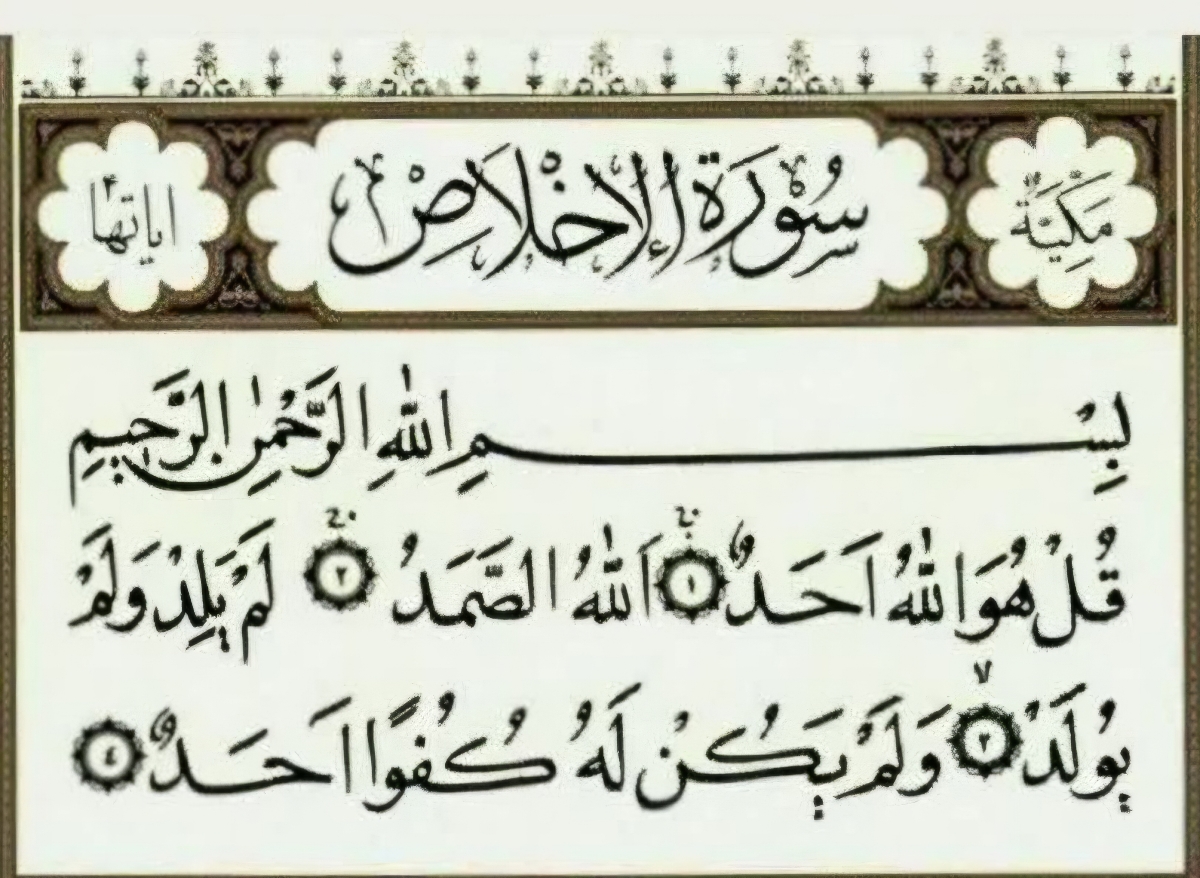 مَكِّيَّةٌ
سُورَةُ الْإِخْلَاصِ
اياتها ٤
بِسْمِ اللّٰهِ الرَّحْمٰنِ الرَّحِيمِ
قُلْ هُوَ اللّٰهُ اَحَدٌ ١ اَللّٰهُ الصَّمَدُ ٢ لَمْ يَلِدْ وَلَمْ
يُولَدْ ٣ وَلَمْ يَكُنْ لَهُ كُفُوًا اَحَدٌ ٤